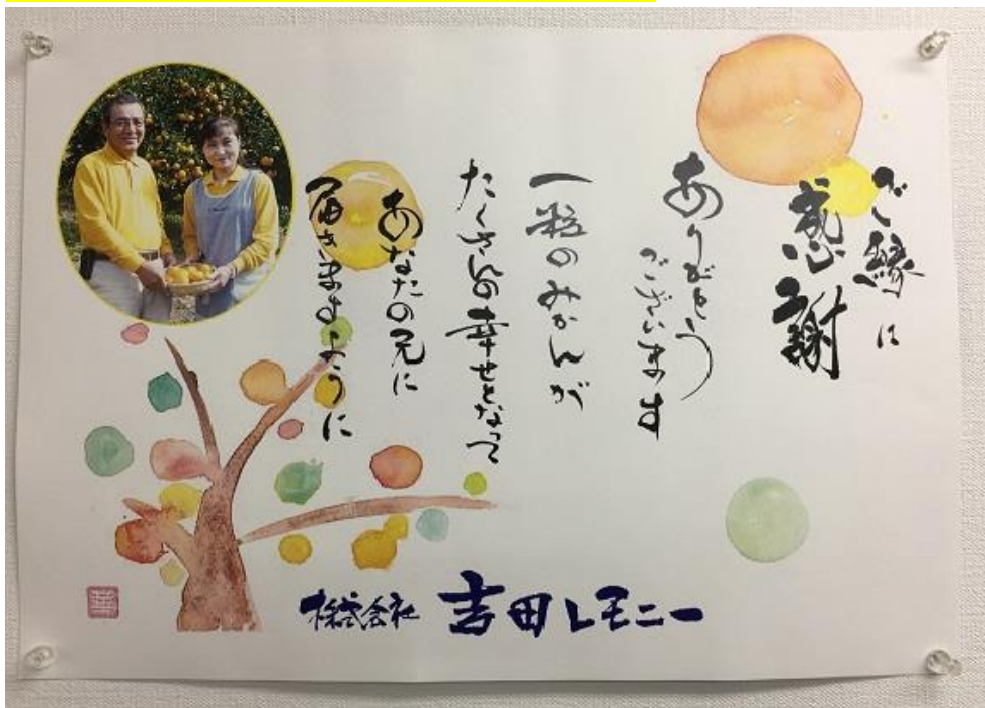 ご縁に
感謝
ありがとう
ございます
一粒のみかんが
たくさんの幸せとなって
あなたの元に
届きますように
株式会社 吉田レモニー
華